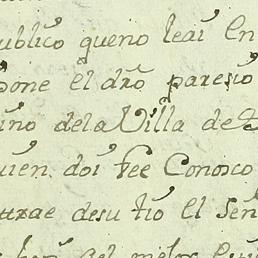 ublico queno leaí En
pone El dro paresio
ino dela Villa de
uien doi fee Conosco
turae desu tio El Señ